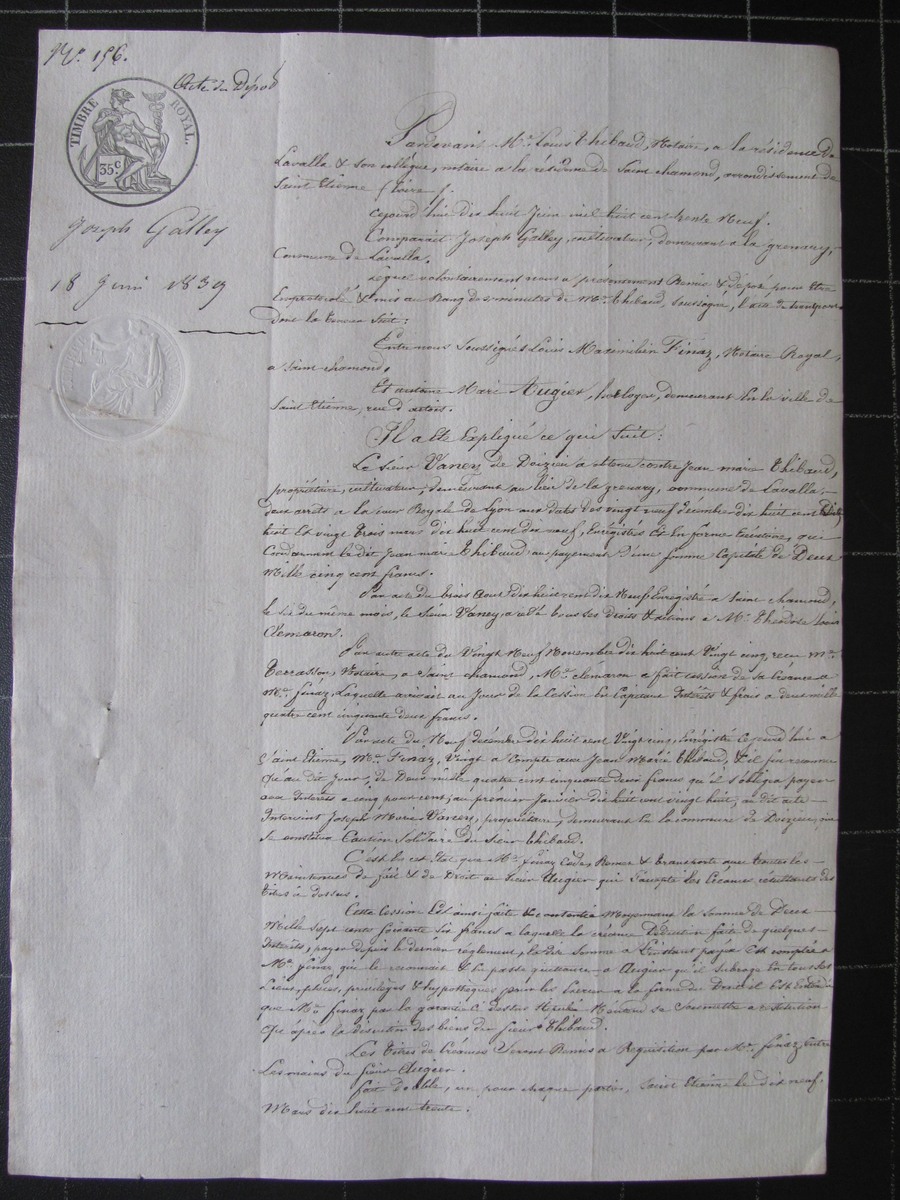 N°. 156.
Acte de Dépôt
TIMBRE ROYAL.
35 c
Joseph Galley
18 Juin 1839
Pardevant Me. Louis Thibaud, Notaire, a la résidence de
Lavalla & son collègue, notaire a la résidence de Saint chamond, arrondissement de
Saint Etienne (Loire).
Cejourd'hui dix huit Juin mil huit cent trente Neuf.
Comparait Joseph Galley, cultivateur, demeurant a la grenary,
Commune de Lavalla.
Lequel volontairement nous a présentement Remis & déposé pour être
& mis au Rang des minutes de Me. Thibaud, soussigné, l'acte de
Dont la teneur Suit:
Entre nous Soussignés Louis Maximilien Finaz, Notaire Royal,
a Saint chamond,
Et antoine Marie Augier, horloger, demeurant En la ville de
Saint Etienne, rue d'artois.
Il a été Expliqué ce qui Suit:
Le Sieur Vanez de Doizieu a obtenu contre Jean marie Thibaud,
propriétaire, cultivateur, demeurant au lieu de la grenary, commune de Lavalla,
deux arrêts a la cour Royale de Lyon aux dates des vingt neuf décembre dix huit cent
huit Et vingt Trois mars dix huit cent dix neuf, Enregistrés Et en forme Exécutoire, qui
Condamnent ledit Jean marie Thibaud au payement d'une somme Capitale de Deux
Mille cinq cent francs.
Par acte du trois aout dix huit cent dix Neuf Enregistré a Saint chamond,
le six du même mois, le Sieur Vanez, a cédé tous ses droits & actions a Mr. Théodore Louis
Clemaron.
Par autre acte du Vingt Neuf Novembre dix huit cent Vingt cinq, reçu Me.
Terrasson, Notaire, a Saint chamond, Mr. Clémaron a fait cession de sa Créance a
Mr. finaz, Laquelle arrivait au Jour de la Cession En Capitaux Intérêts & frais a deux mille
quatre cent cinquante deux francs.
Par acte du Neuf décembre dix huit cent Vingt cinq, Enregistré Cejourd'hui a
Saint Etienne, Mr. Finaz, Vingt a Compte avec Jean Marie Thibaud, & il fut reconnu
au dit Jour de Deux mille quatre cent cinquante deux francs qu'il s'obligea payer
aux Intérêts a cinq pour cent, au premier Janvier dix huit cent vingt huit, au dit acte
Intervint Joseph Marie Vanez, propriétaire, demeurant En la commune de Doizieu, qui
Se constitua Caution Solidaire du Sieur Thibaud.
C'est En cet Etat que Mr. finaz Cède, Remet & transporte avec toutes les
Maintenues de fait & de Droit au Sieur Augier qui l'accepte les Créances résultantes des
titres ci dessus.
Cette Cession Est ainsi faite Moyennant la Somme de Deux
Mille Sept cent soixante Six francs a laquelle la créance déduction faite de quelques
Intérêts, payés depuis le dernier règlement, la dite Somme a l'instant payée Est comptée a
Mr. finaz qui le reconnait & En passe quittance a Augier qu'il Subroge En tous ses
Lieux, places, privilèges & hypothèques pour les Exercer a la forme du Droit il Est Entendu
que Mr. finaz par la garantie Ci dessus Se Soumettre a restitution
Qu'après la discution des biens du Sieur Thibaud.
Les titres de Créances Seront Remis a Requisition par Mr. finaz, Entre
Les mains du Sieur Augier.
fait double, un pour chaque partie, Saint Etienne le Dix neuf
Mars dix huit cent trente.